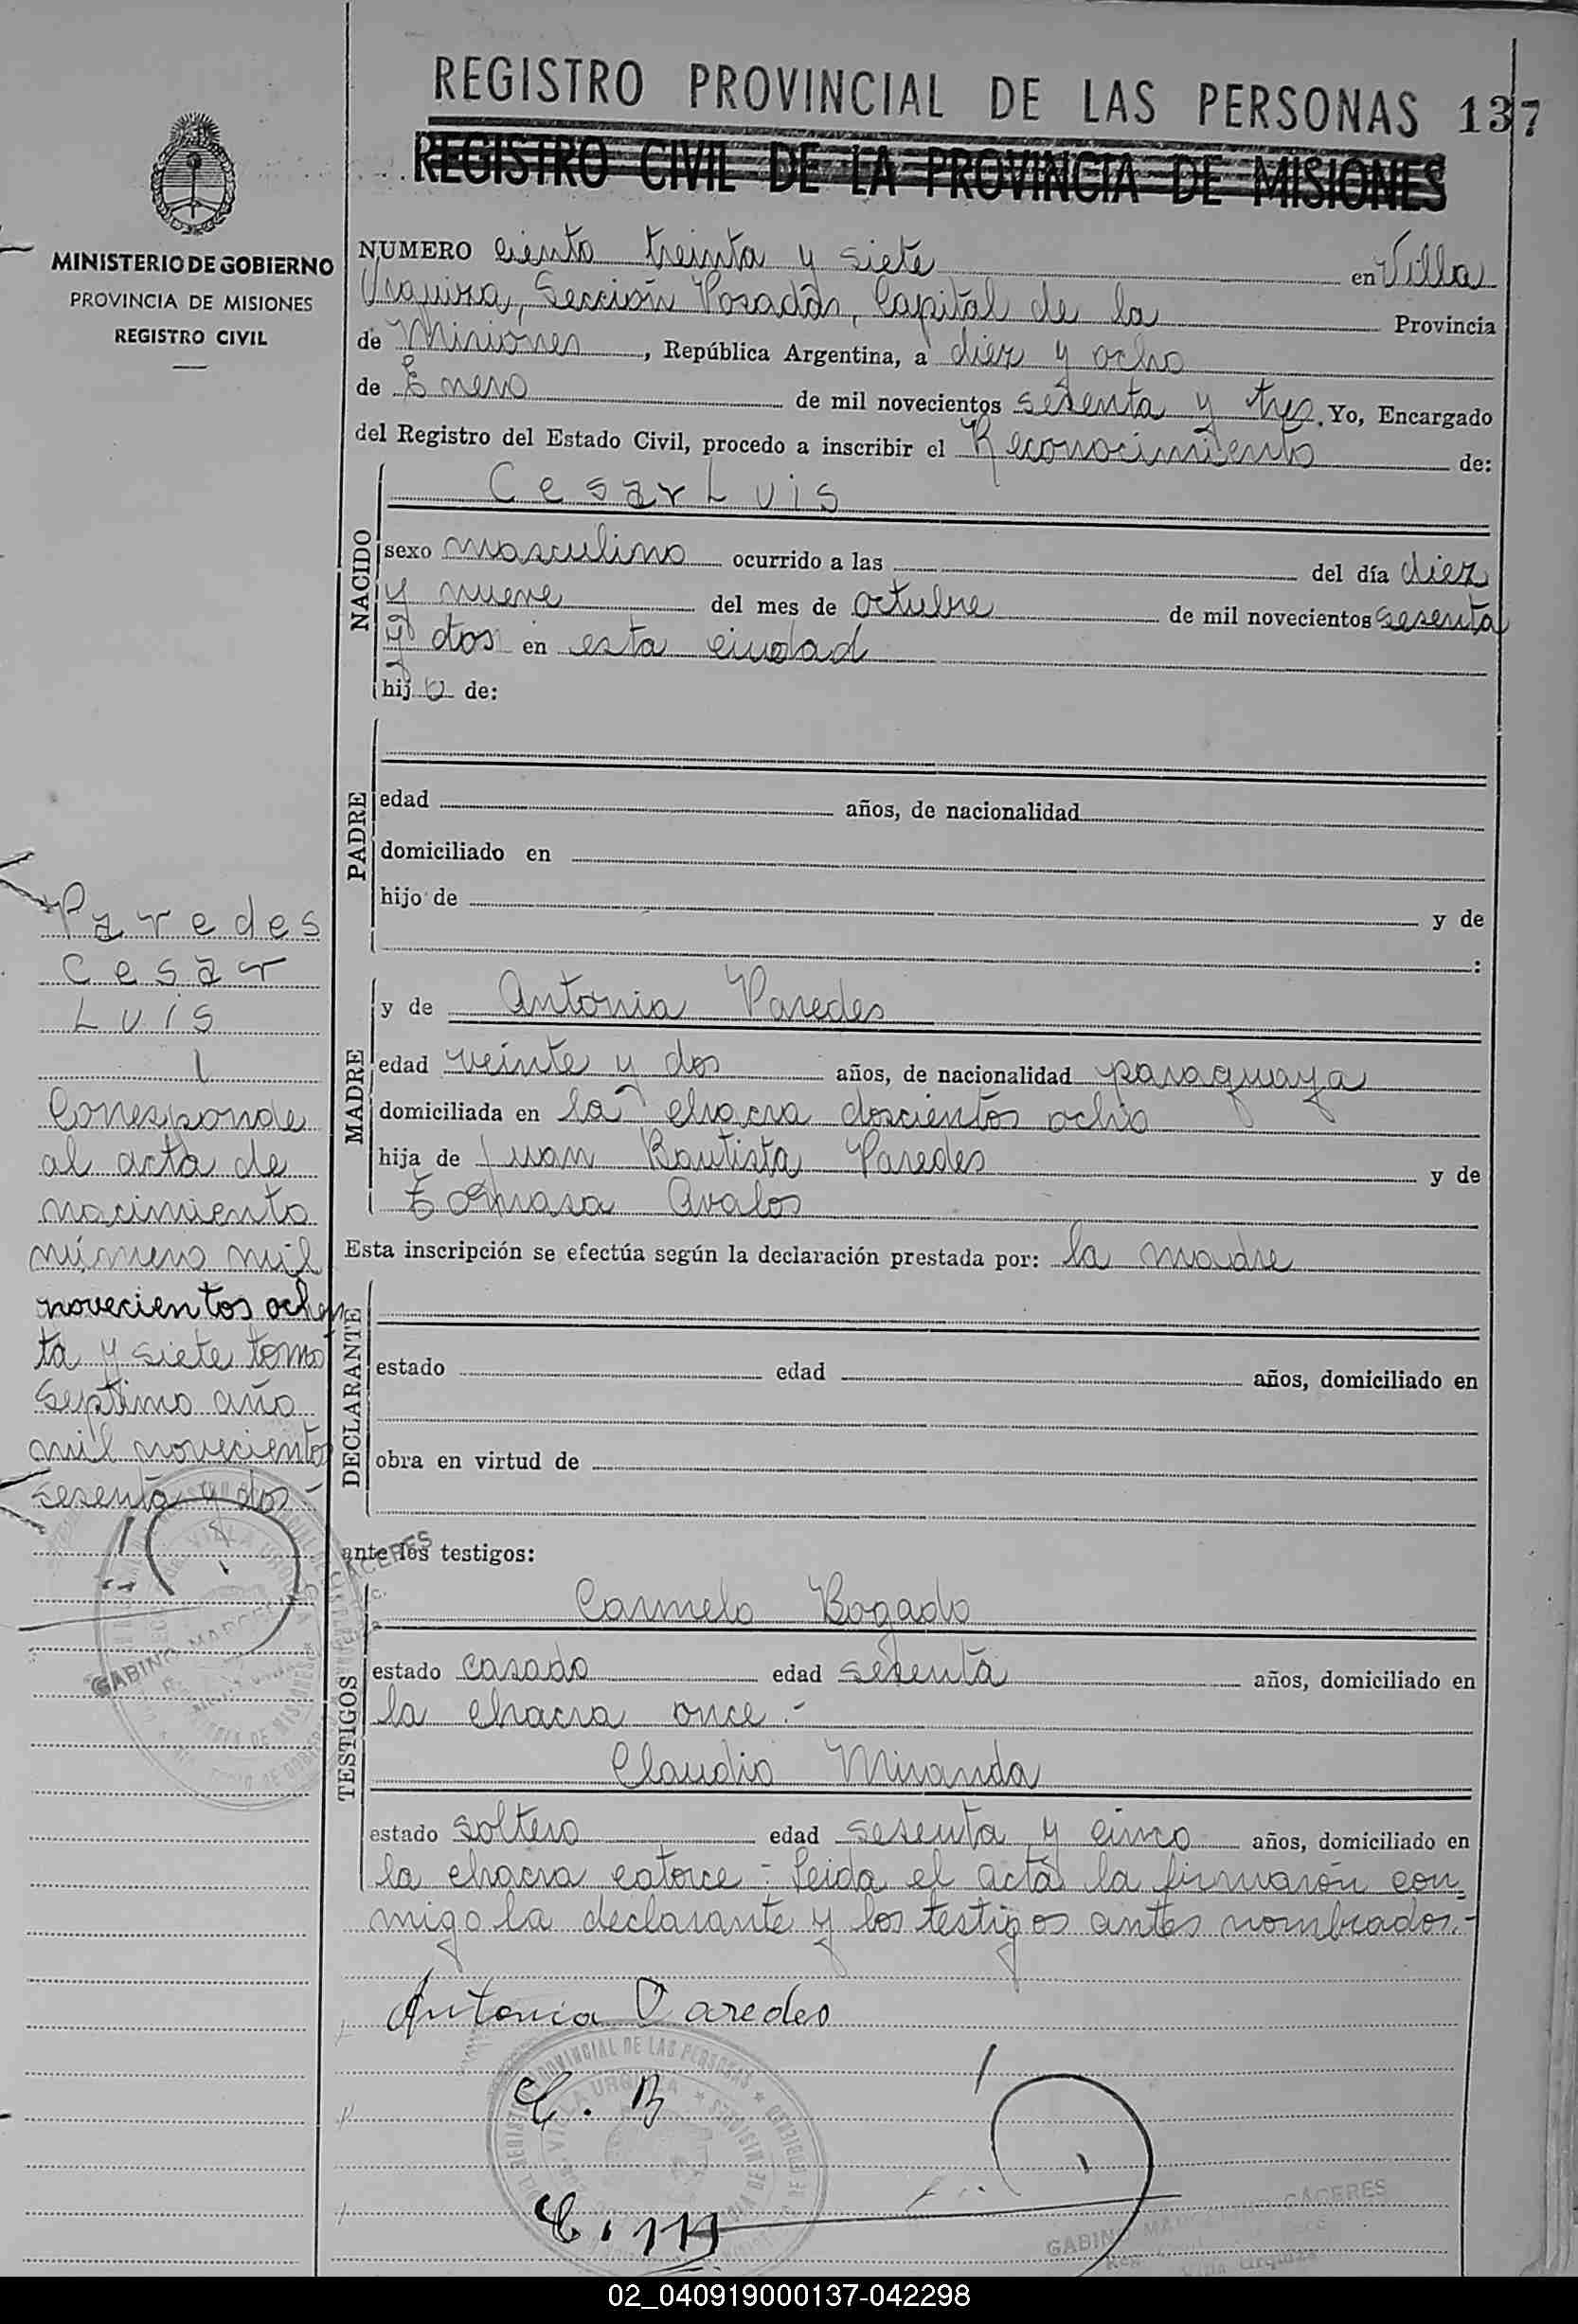 REGISTRO PROVINCIAL DE LAS PERSONAS 137
REGISTRO CIVIL DE LA PROVINCIA DE MISIONES
MINISTERIO DE GOBIERNO
PROVINCIA DE MISIONES
REGISTRO CIVIL
NUMERO ciento treinta y siete en Villa
Urquiza, Sección Posadas, Capital de la Provincia
de Misiones, República Argentina, a diez y ocho
de Enero de mil novecientos sesenta y tres. Yo, Encargado
del Registro del Estado Civil, procedo a inscribir el Reconocimiento de:
NACIDO
Cesar Luis
sexo masculino ocurrido a las del día diez
y nueve del mes de octubre de mil novecientos sesenta
y dos en esta ciudad
hijo de:
PADRE
edad años, de nacionalidad
domiciliado en
hijo de y de
:
Paredes
Cesar
Luis
Corresponde
al acta de
nacimiento
número mil
novecientos ochen
ta y siete tomo
septimo año
mil novecientos
sesenta y dos
MADRE
y de Antonia Paredes
edad veinte y dos años, de nacionalidad paraguaya
domiciliada en la chacra doscientos ocho
hija de Juan Bautista Paredes y de
Tomasa Avalos
Esta inscripción se efectúa según la declaración prestada por: la madre
DECLARANTE
estado edad años, domiciliado en
obra en virtud de
ante los testigos:
TESTIGOS
Carmelo Bogado
estado casado edad sesenta años, domiciliado en
la chacra once.-
Claudio Miranda
estado soltero edad sesenta y cinco años, domiciliado en
la chacra catorce - Leida el acta la firmarón con
migo la declarante y los testigos antes nombrados.-
Antonia Paredes
C. B
C. M
GABINO MARCELINO CÁCERES
02_040919000137-042298